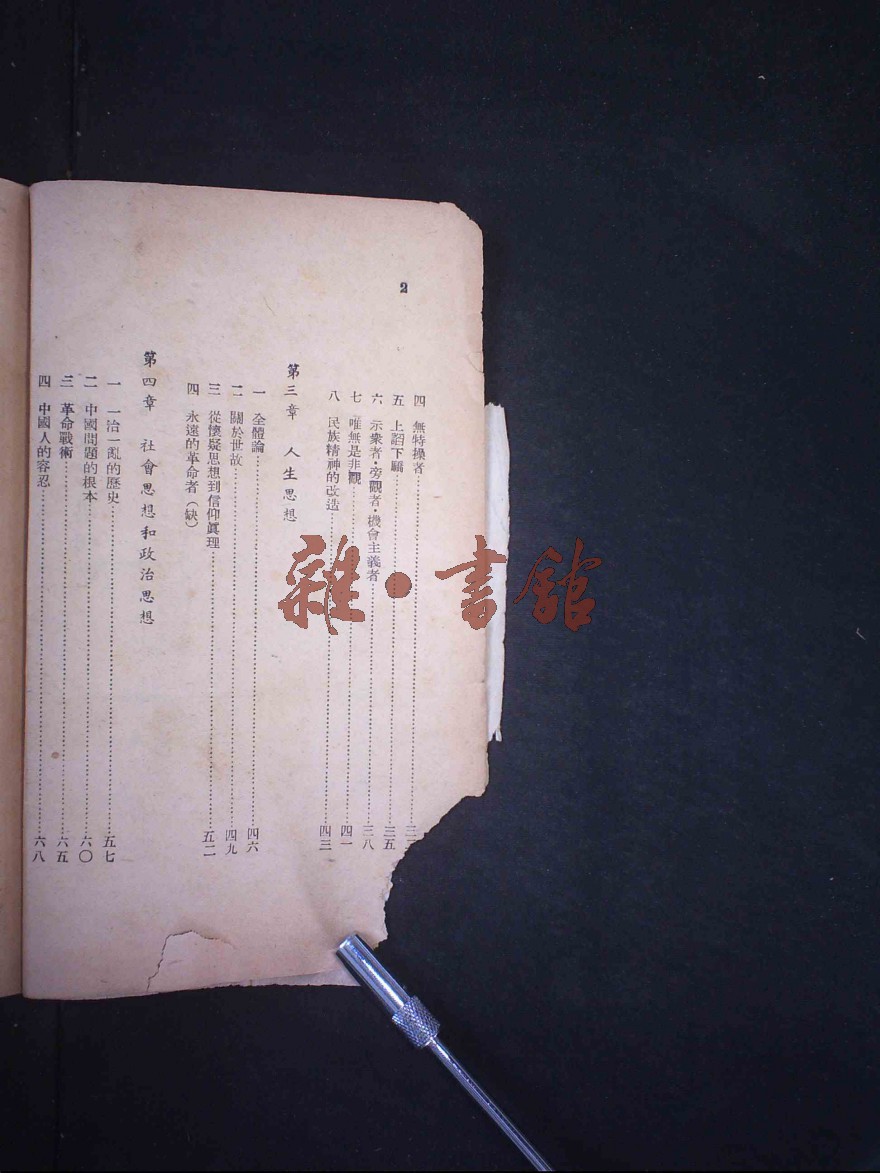 2
四 無特操者……三
五 上諂下驕……三五
六 示衆者·旁觀者·機會主義者……三八
七 唯無是非觀……四一
八 民族精神的改造……四三
第三章 人生思想
一 全體論……四六
二 關於世故……四九
三 從懷疑思想到信仰眞理……五二
四 永遠的革命者（缺）
第四章 社會思想和政治思想
一 一治一亂的歷史……五七
二 中國問題的根本……六〇
三 革命戰術……六五
四 中國人的容忍……六八
雜·書館